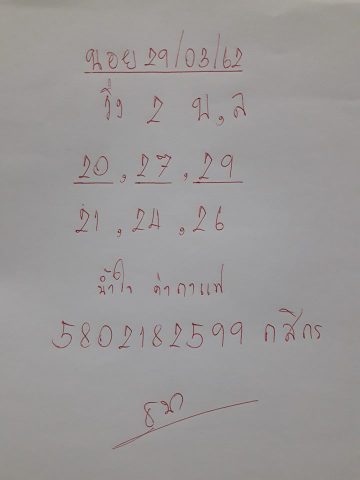 ฮอย 29/03/62
วิ่ง 2 บ,ล
20, 27, 29
21, 24, 26
น้ำใจ ค่ากาแฟ
5802182599 กสิกร